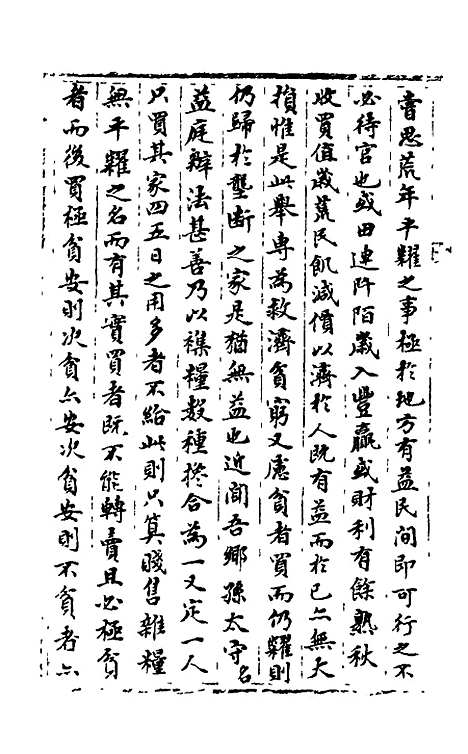 嘗思荒年平糶之事極於地方有益民間即可行之不
必待官也或田連阡陌歲入豐贏或財利有餘熟秋
收買值歲荒民飢減價以濟於人既有益而於已亦無大
損惟是此舉專為救濟貧窮又慮貧者買而仍糶則
仍歸於壟斷之家是猶無益也近聞吾鄉孫太守名
益庭辦法甚善乃以襍糧数種搀合為一又定一人
只買其家四五日之用多者不給此則只算賤售雜糧
無平糶之名而有其實買者既不能轉賣且必極貧
者而後買極貧安則次貧亦安次貧安則不貧者亦